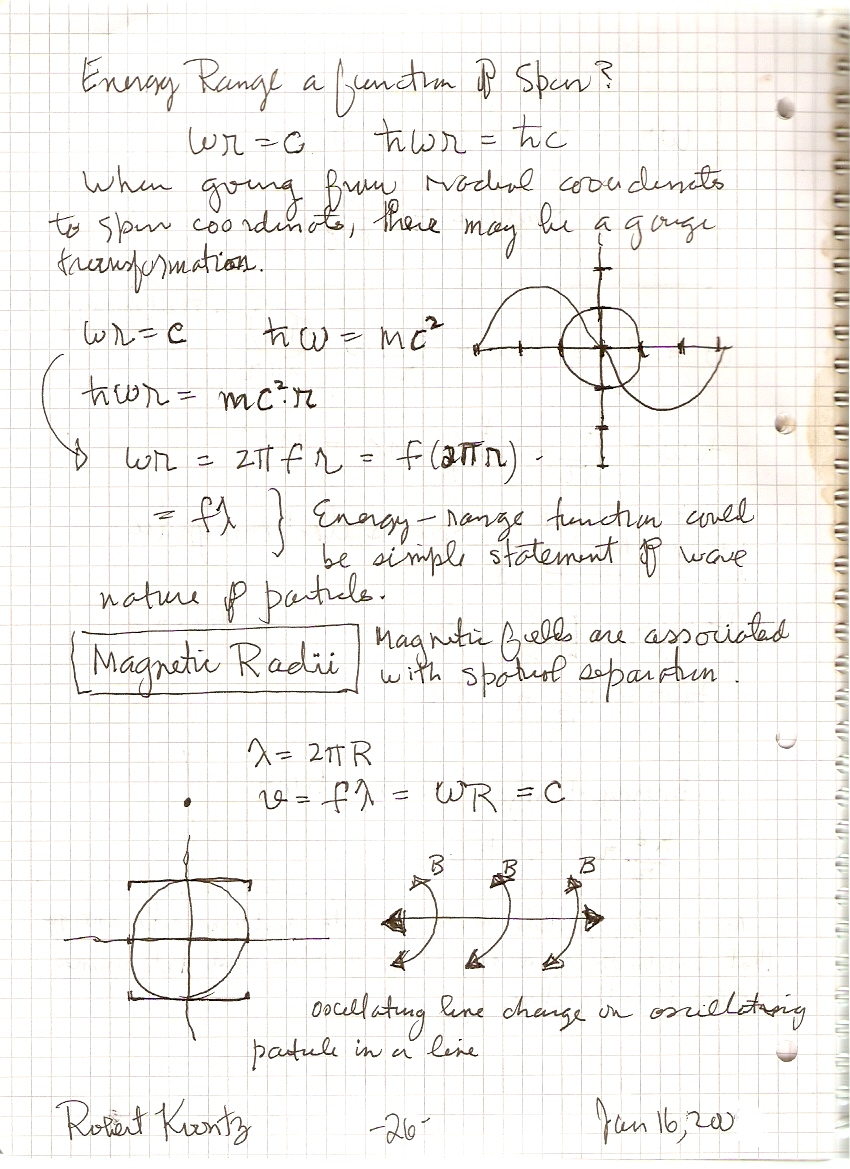 Energy Range a function of Spin?
ωr = c ħωr = ħc
When going from radial coordinates
to spin coordinates, there may be a gauge
transformation.
ωr = c ħω = mc²
ħωr = mc²·r
ωr = 2πfr = f(2πr).
= fλ } Energy-range function could
be simple statement of wave
nature of particle.
[Magnetic Radii] Magnetic fields are associated
with spatial separation.
λ = 2πR
v = fλ = ωR = c
B B B
oscillating line charge or oscillating
particle in a line
Robert Koontz -26- Jan 16, 200